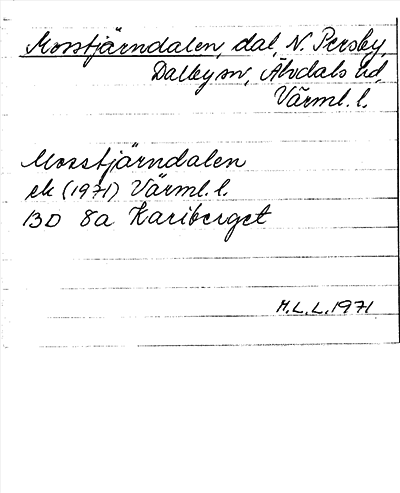 Mosstjärndalen, dal, N. Persby,
Dalby sn, Älvdals hd,
Värml. l.
Mosstjärndalen
ek (1971) Värml. l.
13D 8a Kariberget
M.L.L. 1971